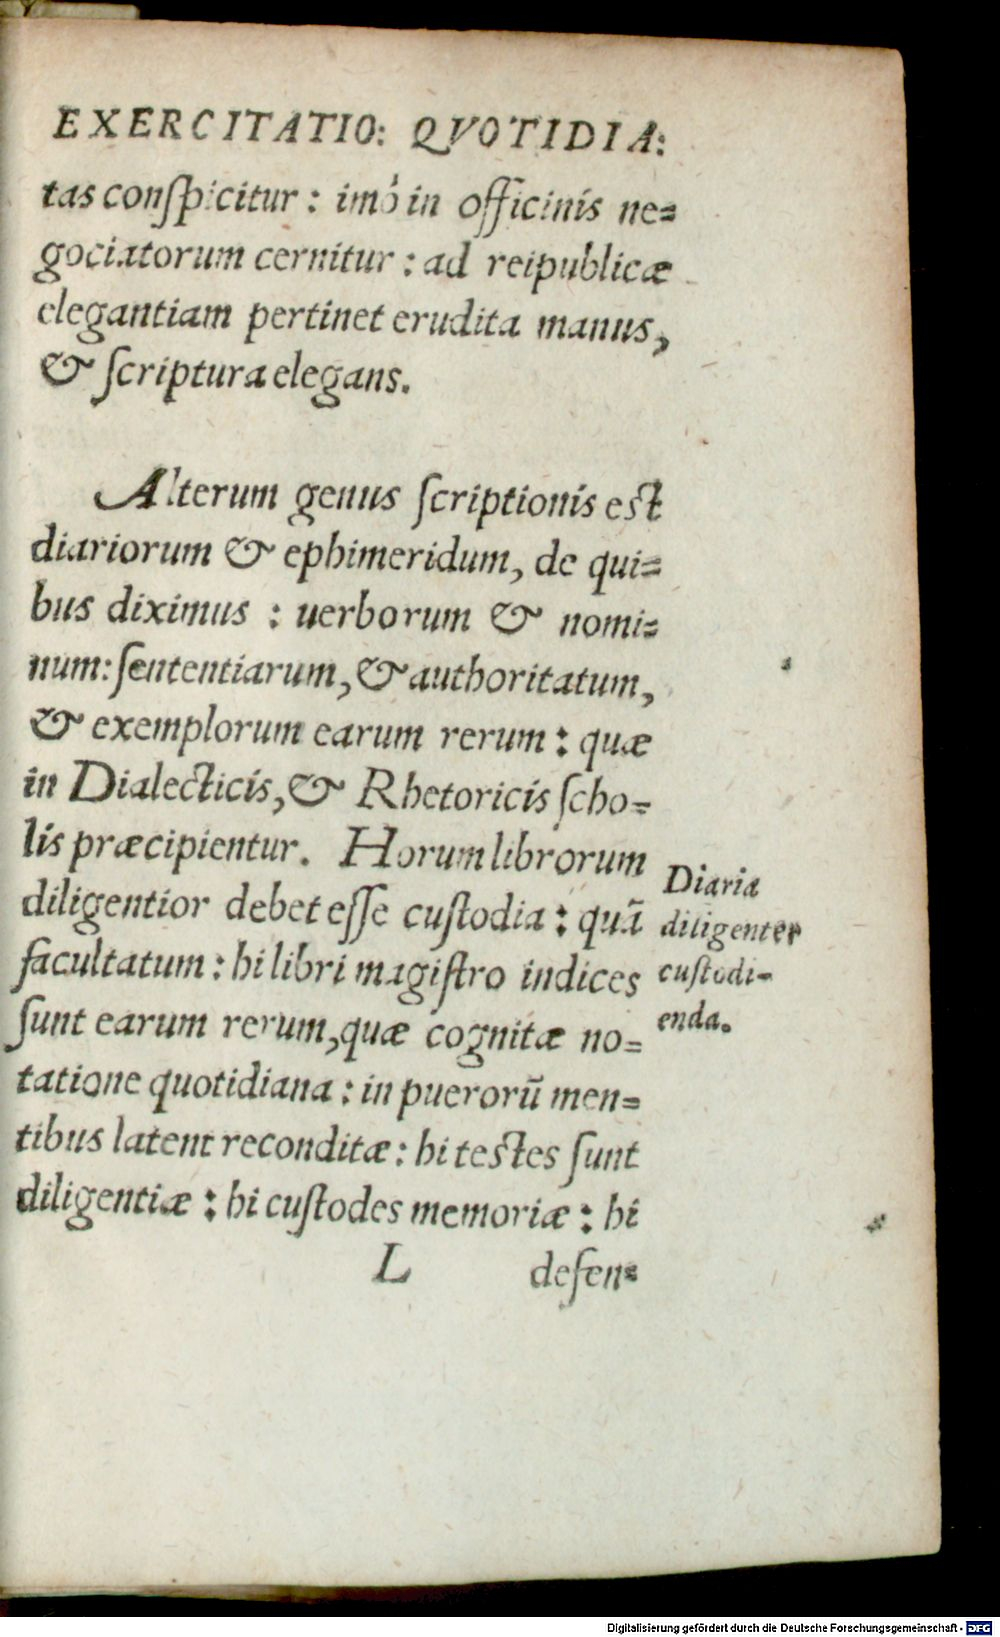 EXERCITATIO: QVOTIDIA:
tas conſpicitur : imò in officinis ne=
gociatorum cernitur : ad reipublicæ
elegantiam pertinet erudita manus,
& ſcriptura elegans.
Alterum genus ſcriptionis eſt
diariorum & ephimeridum, de qui=
bus diximus : uerborum & nomi=
num: ſententiarum, & authoritatum,
& exemplorum earum rerum : quæ
in Dialecticis, & Rhetoricis ſcho=
lis præcipientur. Horum librorum
diligentior debet eſſe cuſtodia : quā
facultatum : hi libri magiſtro indices
ſunt earum rerum, quæ cognitæ no=
tatione quotidiana : in puerorū men=
tibus latent reconditæ : hi teſtes ſunt
diligentiæ : hi cuſtodes memoriæ : hi
L defen=
Diaria
diligenter
cuſtodi=
enda.
Digitalisierung gefördert durch die Deutsche Forschungsgemeinschaft - DFG